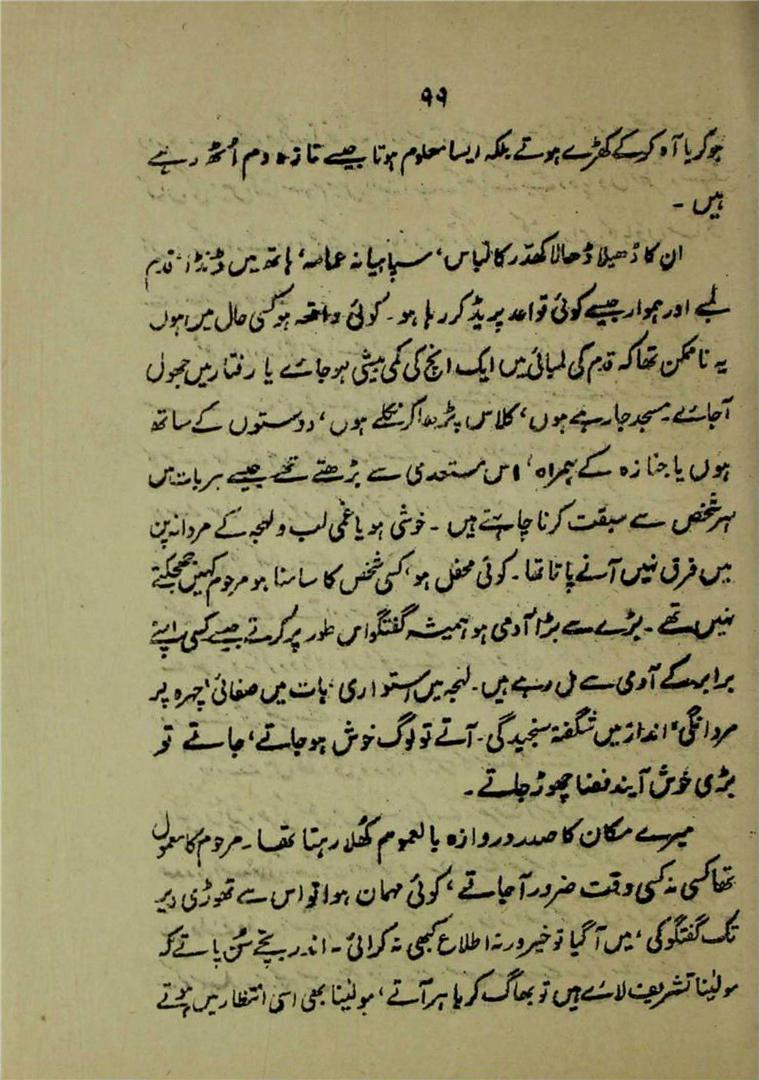 ۹۹
جو گریا آہ کرکے کھڑے ہوتے بلکہ ایسا معلوم ہوتا جیسے تازہ دم اُٹھ رہے
ہیں ۔
ان کا ڈھیلا ڈھالا کھدّر کا لباس، سپاہیانہ عمامہ، ہاتھ میں ڈنڈا، قدم
لمبے اور ہموار جیسے کوئی قواعد پریڈ کر رہا ہو۔ کوئی واقعہ ہو کسی حال میں ہوں
یہ نا ممکن تھا کہ قدم کی لمبائی میں ایک انچ کی کمی بیشی ہو جائے یا رفتار میں جھول
آجائے۔ مسجد جا رہے ہوں، کلاس پڑھا کر نکلے ہوں، دوستوں کے ساتھ
ہوں یا جنازہ کے ہمراہ، اس مستعدی سے بڑھتے تھے جیسے ہر بات میں
ہر شخص سے سبقت کرنا چاہتے ہیں ۔ خوشی ہو یا غمی لب و لہجہ کے مردانہ پن
میں فرق نہیں آنے پاتا تھا۔ کوئی محفل ہو، کسی شخص کا سامنا ہو مرحوم کہیں جھجکتے
نہیں تھے ۔ بڑے سے بڑا آدمی ہو ہمیشہ گفتگو اس طور پر کرتے جیسے کسی اپنے
برابر کے آدمی سے مل رہے ہیں۔ لہجہ میں استواری، بات میں صفائی، چہرہ پر
مردانگی، انداز میں شگفتہ سنجیدگی۔ آتے تو لوگ خوش ہو جاتے، جاتے تو
بڑی خوش آیند فضا چھوڑ جاتے ۔
میرے مکان کا صدر دروازہ بالعموم کُھلا رہتا تھا۔ مرحوم کا معمول
تھا کسی نہ کسی وقت ضرور آجاتے، کوئی مہمان ہوا تو اس سے تھوڑی دیر
تک گفتگو کی، میں آگیا تو خیر ورنہ اطلاع کبھی نہ کرائی ۔ اندر بچے سُن پاتے کہ
مولینا تشریف لائے ہیں تو بھاگ کر باہر آتے، مولینا بھی اسی انتظار میں ہوتے